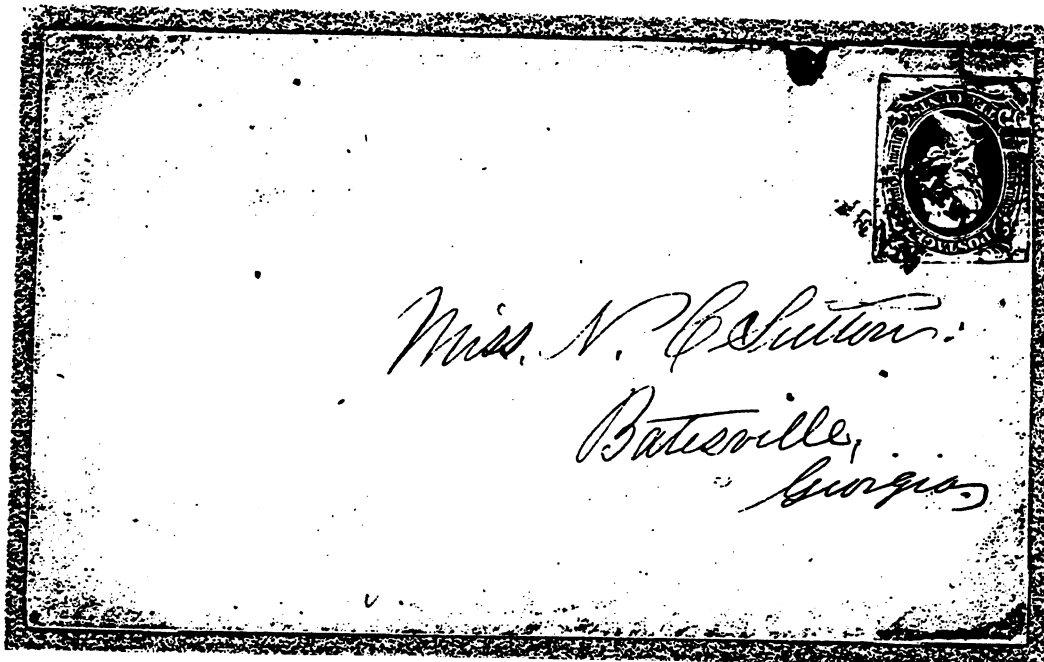 Miss. N. C Sutton.
Batesville,
Georgia.